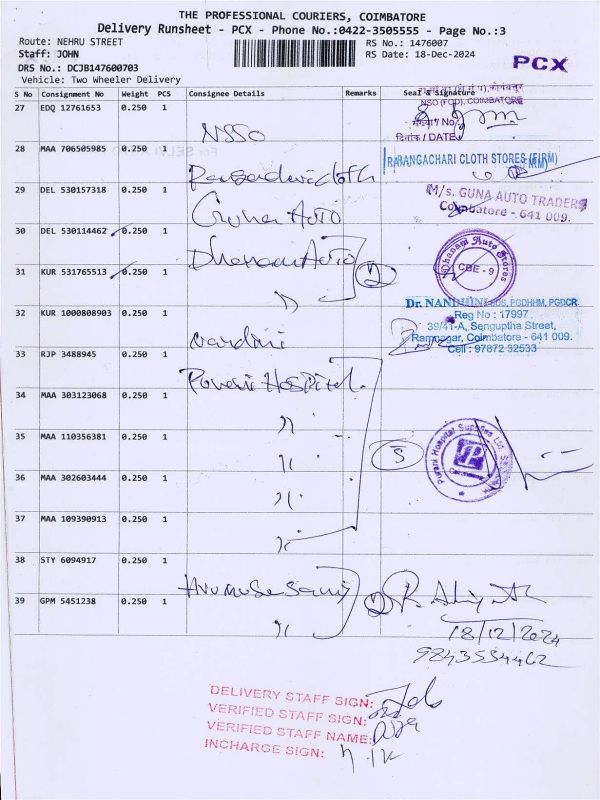 THE PROFESSIONAL COURIERS, COIMBATORE
Delivery Runsheet - PCX - Phone No.:0422-3505555 - Page No.:3
Route: NEHRU STREET
RS No.: 1476007
Staff: JOHN
RS Date: 18-Dec-2024
DRS No.: DCJB147600703
PCX
Vehicle: Two Wheeler Delivery
S No Consignment No Weight PCS Consignee Details Remarks Seal & Signature
27 EDQ 12761653 0.250 1 NSSO
NSO (FOD), COIMBATORE
संख्या / No
दिनांक / DATE
28 MAA 706505985 0.250 1
RARANGACHARI CLOTH STORES (FIRM)
29 DEL 530157318 0.250 1 Guna Auto
M/s. GUNA AUTO TRADERS
Coimbatore - 641 009.
30 DEL 530114462 0.250 1 Dhanam Auto
Dhanam Auto Stores
CBE - 9
31 KUR 531765513 0.250 1 " 2
32 KUR 1000808903 0.250 1 nandini
Dr. NANDHINI BDS, PGDHHM, PGDCR.
Reg No : 17997
39/41-A, Senguptha Street,
Ramnagar, Coimbatore - 641 009.
Cell : 97872 32533
33 RJP 3488945 0.250 1 Purani Hospital
34 MAA 303123068 0.250 1 "
35 MAA 110356381 0.250 1 " 5
Purani Hospital Supplies
36 MAA 302603444 0.250 1 "
37 MAA 109390913 0.250 1 "
38 STY 6094917 0.250 1
39 GPM 5451238 0.250 1 " 2
18/12/2024
9843554462
DELIVERY STAFF SIGN:
VERIFIED STAFF SIGN:
VERIFIED STAFF NAME:
INCHARGE SIGN: